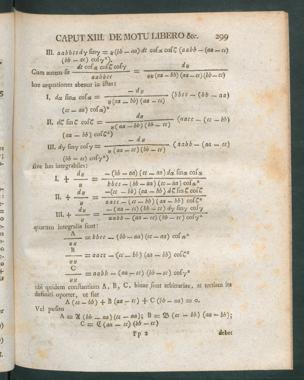 CAPUT XIII. DE MOTU LIBERO &c. 299
III. aabbccdγ sinγ = u(bb — aa) dt cosα cosζ (aabb—(aa—cc)
(bb — cc) cosγ²).
Cum autem sit dt cosα cosζ cosγ / aabbcc = du / uu(aa—bb)(aa—cc)(bb—cc)
hoc aequationes abeunt in istas:
I. dα sinα cosα = — du / u(aa — bb)(aa — cc) (bbcc — (bb — aa)
(cc — aa) cosα²
II. dζ sinζ cosζ = du / u(aa—bb)(bb—cc) (aacc — (cc — bb)
(aa — bb) cosζ²)
III. dγ sinγ cosγ = — du / u(aa—cc)(bb—cc) (aabb — (aa — cc)
(bb — cc) cosγ²)
sive has integrabiles:
I. + du / u = — (bb — aa)(cc — aa) dα sinα cosα / bbcc — (bb — aa)(cc — aa) cosα²
II. + du / u = —(cc — bb)(aa — bb) dζ sinζ cosζ / aacc — (cc — bb)(aa — bb) cosζ²
III. + du / u = — (aa — cc)(bb — cc) dγ sinγ cosγ / aabb — (aa — cc)(bb — cc) cosγ²
quarum integralia sunt:
A / uu = bbcc — (bb — aa)(cc — aa) cosα²
B / uu = aacc — (cc — bb)(aa — bb) cosζ²
C / uu = aabb — (aa — cc)(bb — cc) cosγ²
ubi quidem constantium A, B, C, binae sunt arbitrariae, at tertiam ita
definiri oportet, ut sit
A (cc — bb) + B (aa — cc) + C (bb — aa) = 0.
Vel posito
A = 𝔄 (bb — aa)(cc — aa); B = 𝔅 (cc — bb)(aa — bb);
C = ℭ (aa — cc)(bb — cc)
Pp 2 debet